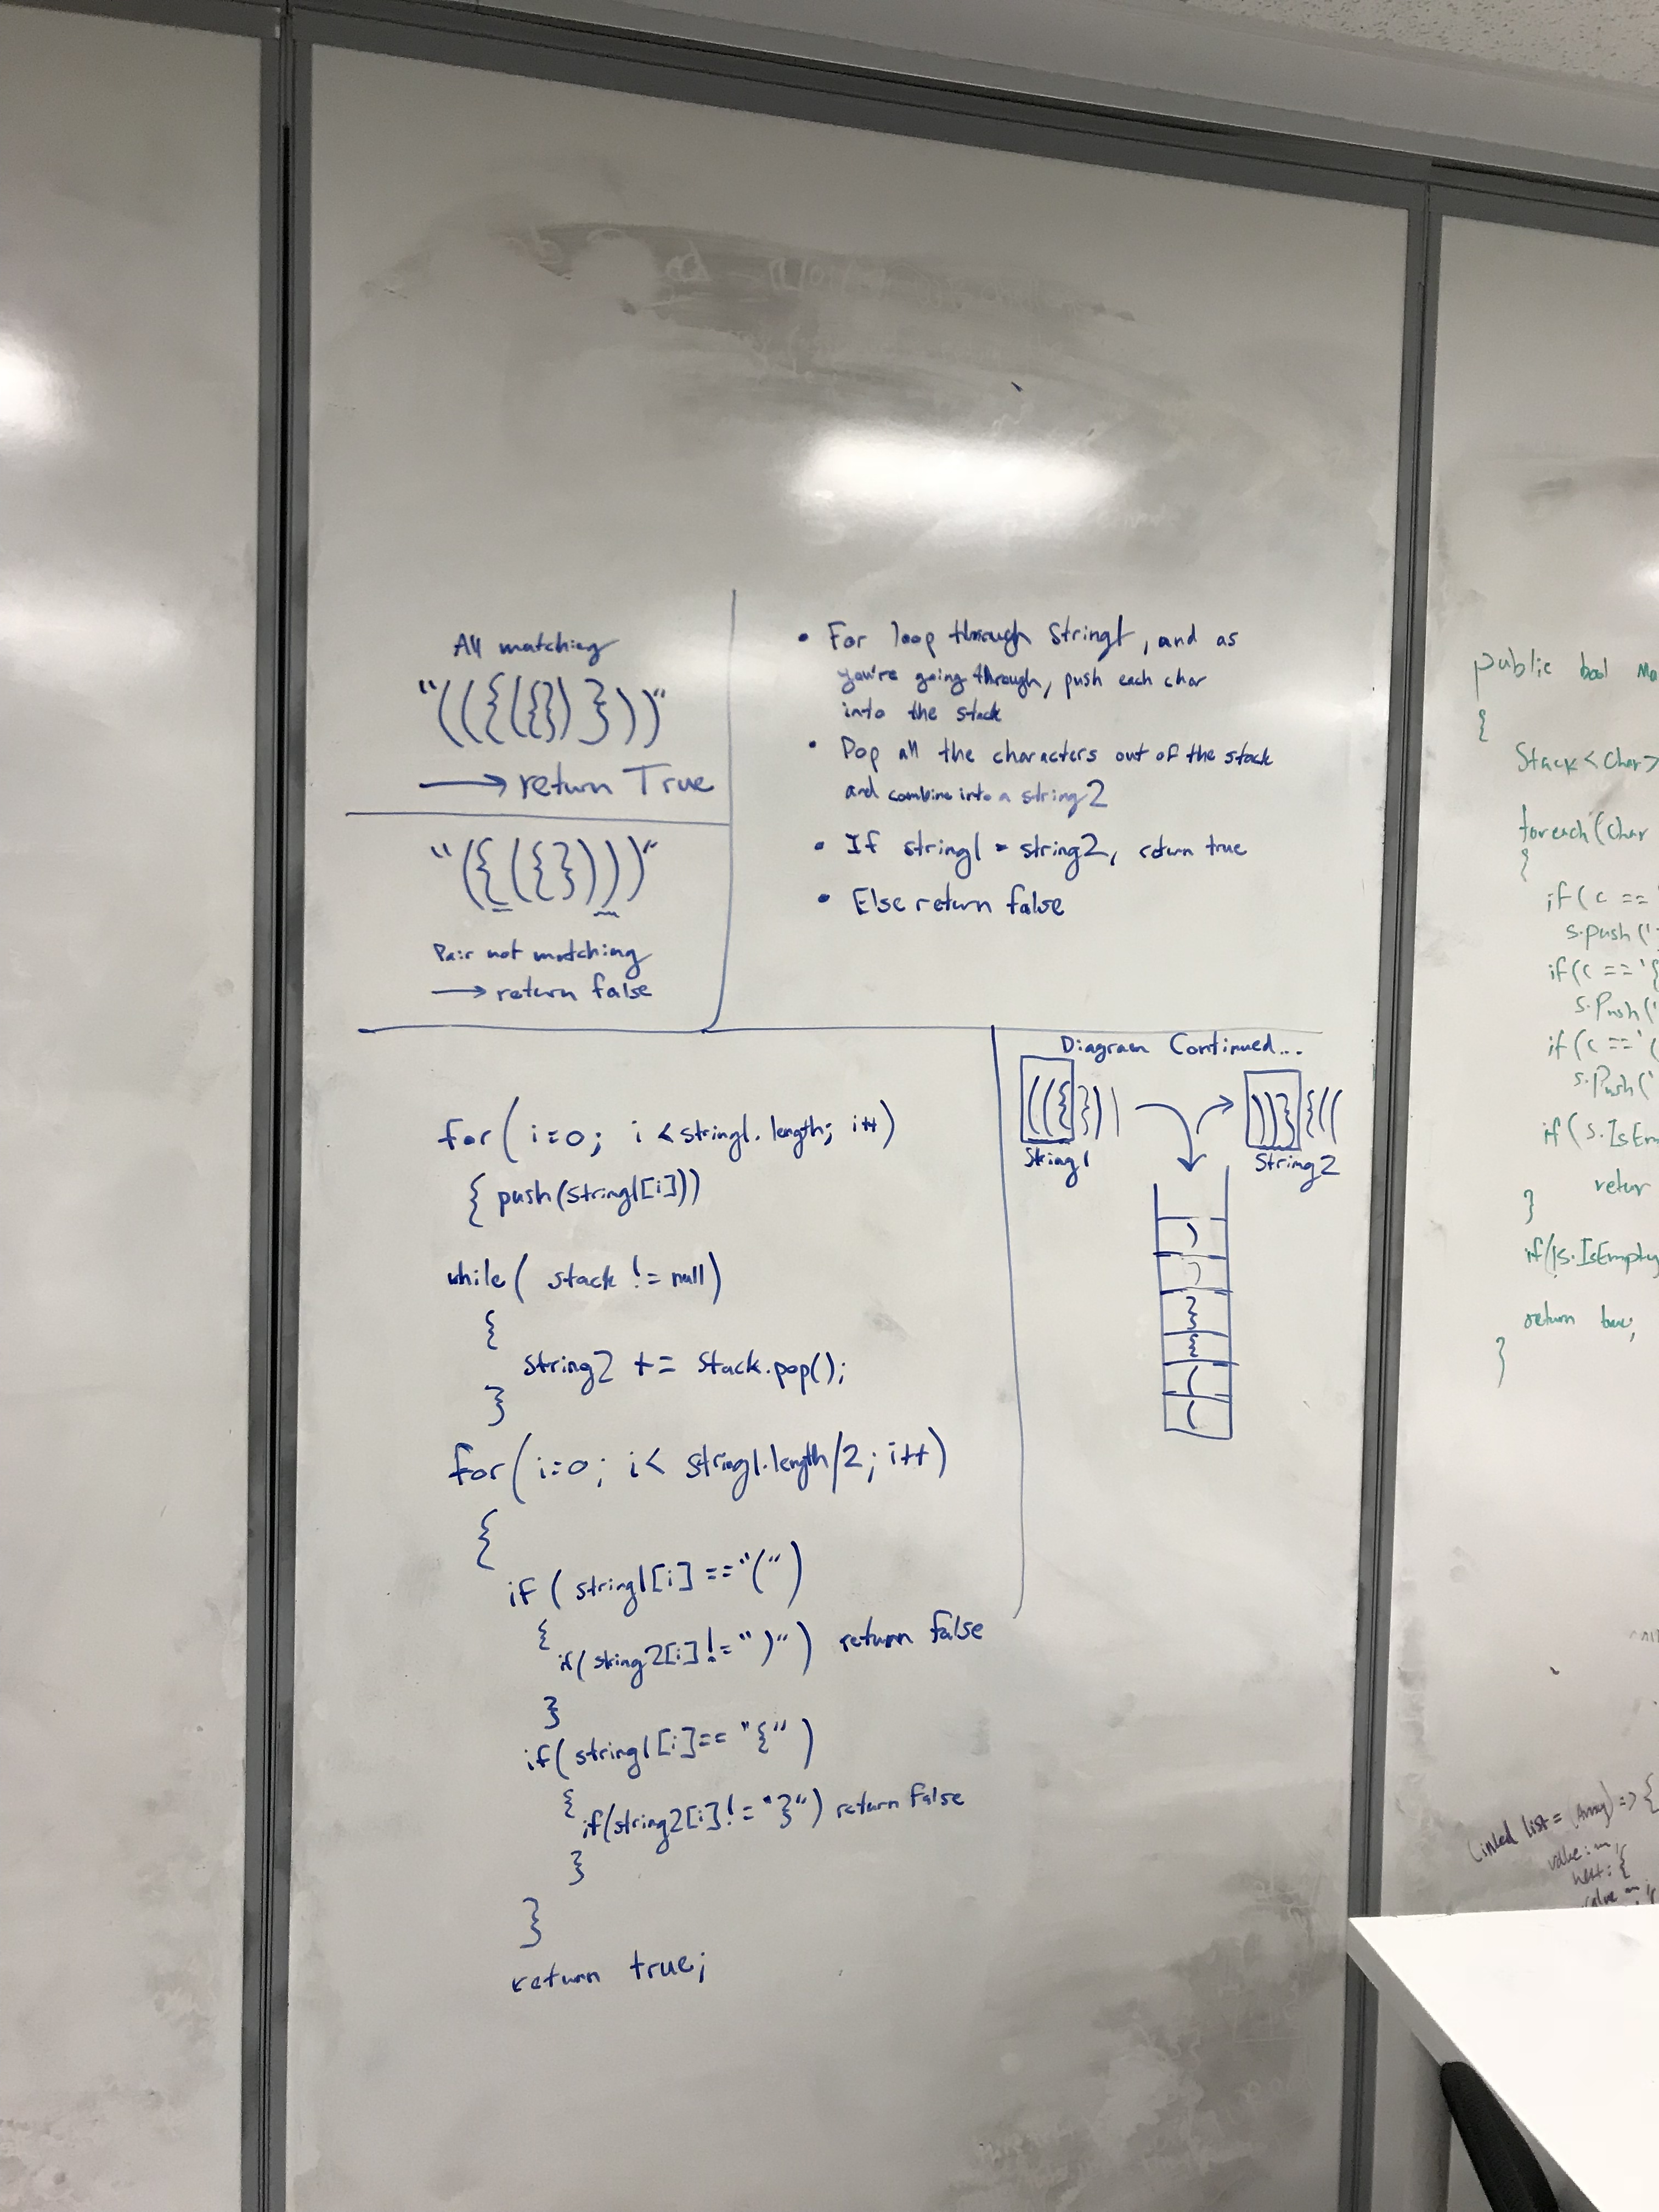 All matching
"(({({})}))"
→ return True
"({({})))"
Pair not matching
→ return false
• For loop through String1, and as
you're going through, push each char
into the stack
• Pop all the characters out of the stack
and combine into a string2
• If string1 = string2, return true
• Else return false
for( i=0; i < string1.length; i++)
{ push(string1[i]))
while( stack != null)
{
string2 += Stack.pop();
}
for(i=0; i< string1.length/2; i++)
{
if ( string1[i] == "(" )
{
if( string2[i] != ")" ) return false
}
if( string1[i]== "{" )
{
if(string2[i] != "}") return false
}
}
return true;
Diagram Continued...
(({}))
String1
))}{((
String2
)
)
}
{
(
(
public bool
{
Stack<Char>
foreach(Char
{
if( c ==
s.push('
if(c == '{
s.Push('
if( c == '(
s.Push('
if( s.IsEm
retur
}
if(!s.IsEmpty
return true;
}
Linked list = (Array) => {
value:
next: {
value